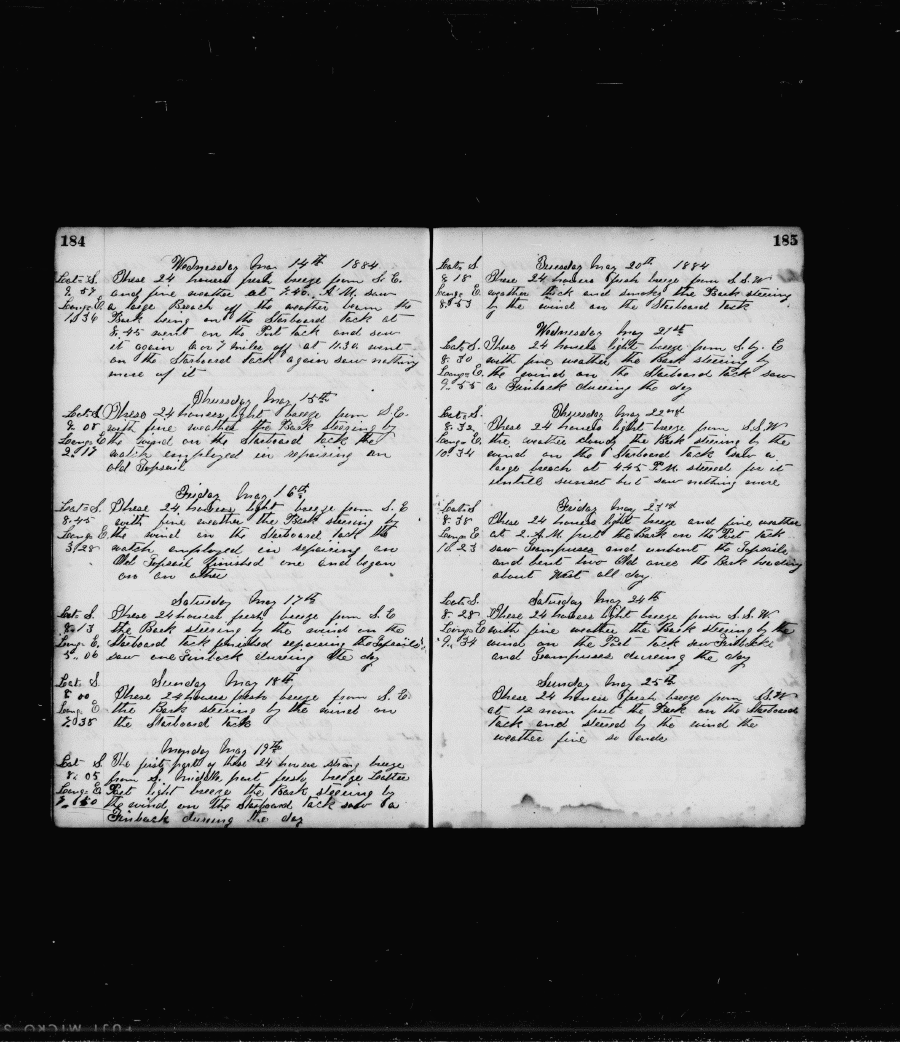 184
Wednesday May 14th 1884
Lat= S. These 24 hours fresh breeze from S.E.
9. 57 and fine weather at 7.40. A.M. saw
Long= E. a large Breach off the weather beam the
1.. 36 Bark being on the Starboard tack at
8.45 went on the Port tack and saw
it again miles off at 11.30 went
on the Starboard tack again saw nothing
more of it
Thursday May 15th
Lat= S. These 24 houres light breeze from S.E.
9. 08 with fine weather the Bark steering by
Long= E the wind on the Starboard tack the
2.. 17 watch employed in repairing an
old Topsail
Friday May 16th
Lat= S. These 24 houres light breeze from S.E
8. 45 with fine weather the Bark steering by
Long= E. the wind on the Starboard tack the
3. 28 watch employed in repairing an
Old Topsail finished one and began
on an other
Saturday May 17th
Lat= S. These 24 houres fresh breeze from S.E
8. 13 the Bark steering by the wind on the
Long= E. Starboard tack finished repairing the Topsails
5.. 06 saw one Finback dureing the day
Sunday May 18th
Lat= S.
8 00 These 24 houres fresh breeze from S.E.
Long E the Bark steering by the wind on
7. 38 the Starboard tack
Monday May 19th
Lat= S The first part of these 24 houres strong breeze
8. 05 from S. middle part fresh breeze Latter
Long= E Part light breeze the Bark steering by
the wind on the Starboard tack saw a
Finback dureing the day
185
Tuesday May 20th 1884
Lat= S.
8 18 These 24 houres fresh breeze from S.S.W
Long= E. weather thick and smoky the Bark steering
8. 53 by the wind on the Starboard tack
Wednesday May 21st
Lat= S. These 24 houres light breeze from S. by. E
8. 30 with fine weather the Bark steering by
Long= E. the wind on the Starboard tack saw
9. 55 a Finback dureing the day
Thursday May 22nd
Lat= S.
8. 32 These 24 houres light breeze from S.S.W
Long= E. the weather cloudy the Bark steering by the
10. 34 wind on the Starboard tack saw a
large breach at 4.45 P.M. steered for it
untill sunset but saw nothing more
Friday 23rd
Lat= S.
8. 38 These 24 houres light breeze and fine weather
Long= E at 2. A.M put the Bark on the Port tack
10. 23 saw Grampuses and unbent the Topsails
and bent two Old ones the Bark heading
about West all day
Saturday May 24th
Lat= S.
8. 28 These 24 houres light breeze from S.S.W.
Long= E with fine weather the Bark steering by the
9. 34 wind on the Port tack saw Finbacks
and Grampuses dureing the day
Sunday May 25th
These 24 houres fresh breeze from S.S.W
at 12 noon put the Bark on the Starboard
tack and steered by the wind the
weather fine so ends
FUJI MICRO